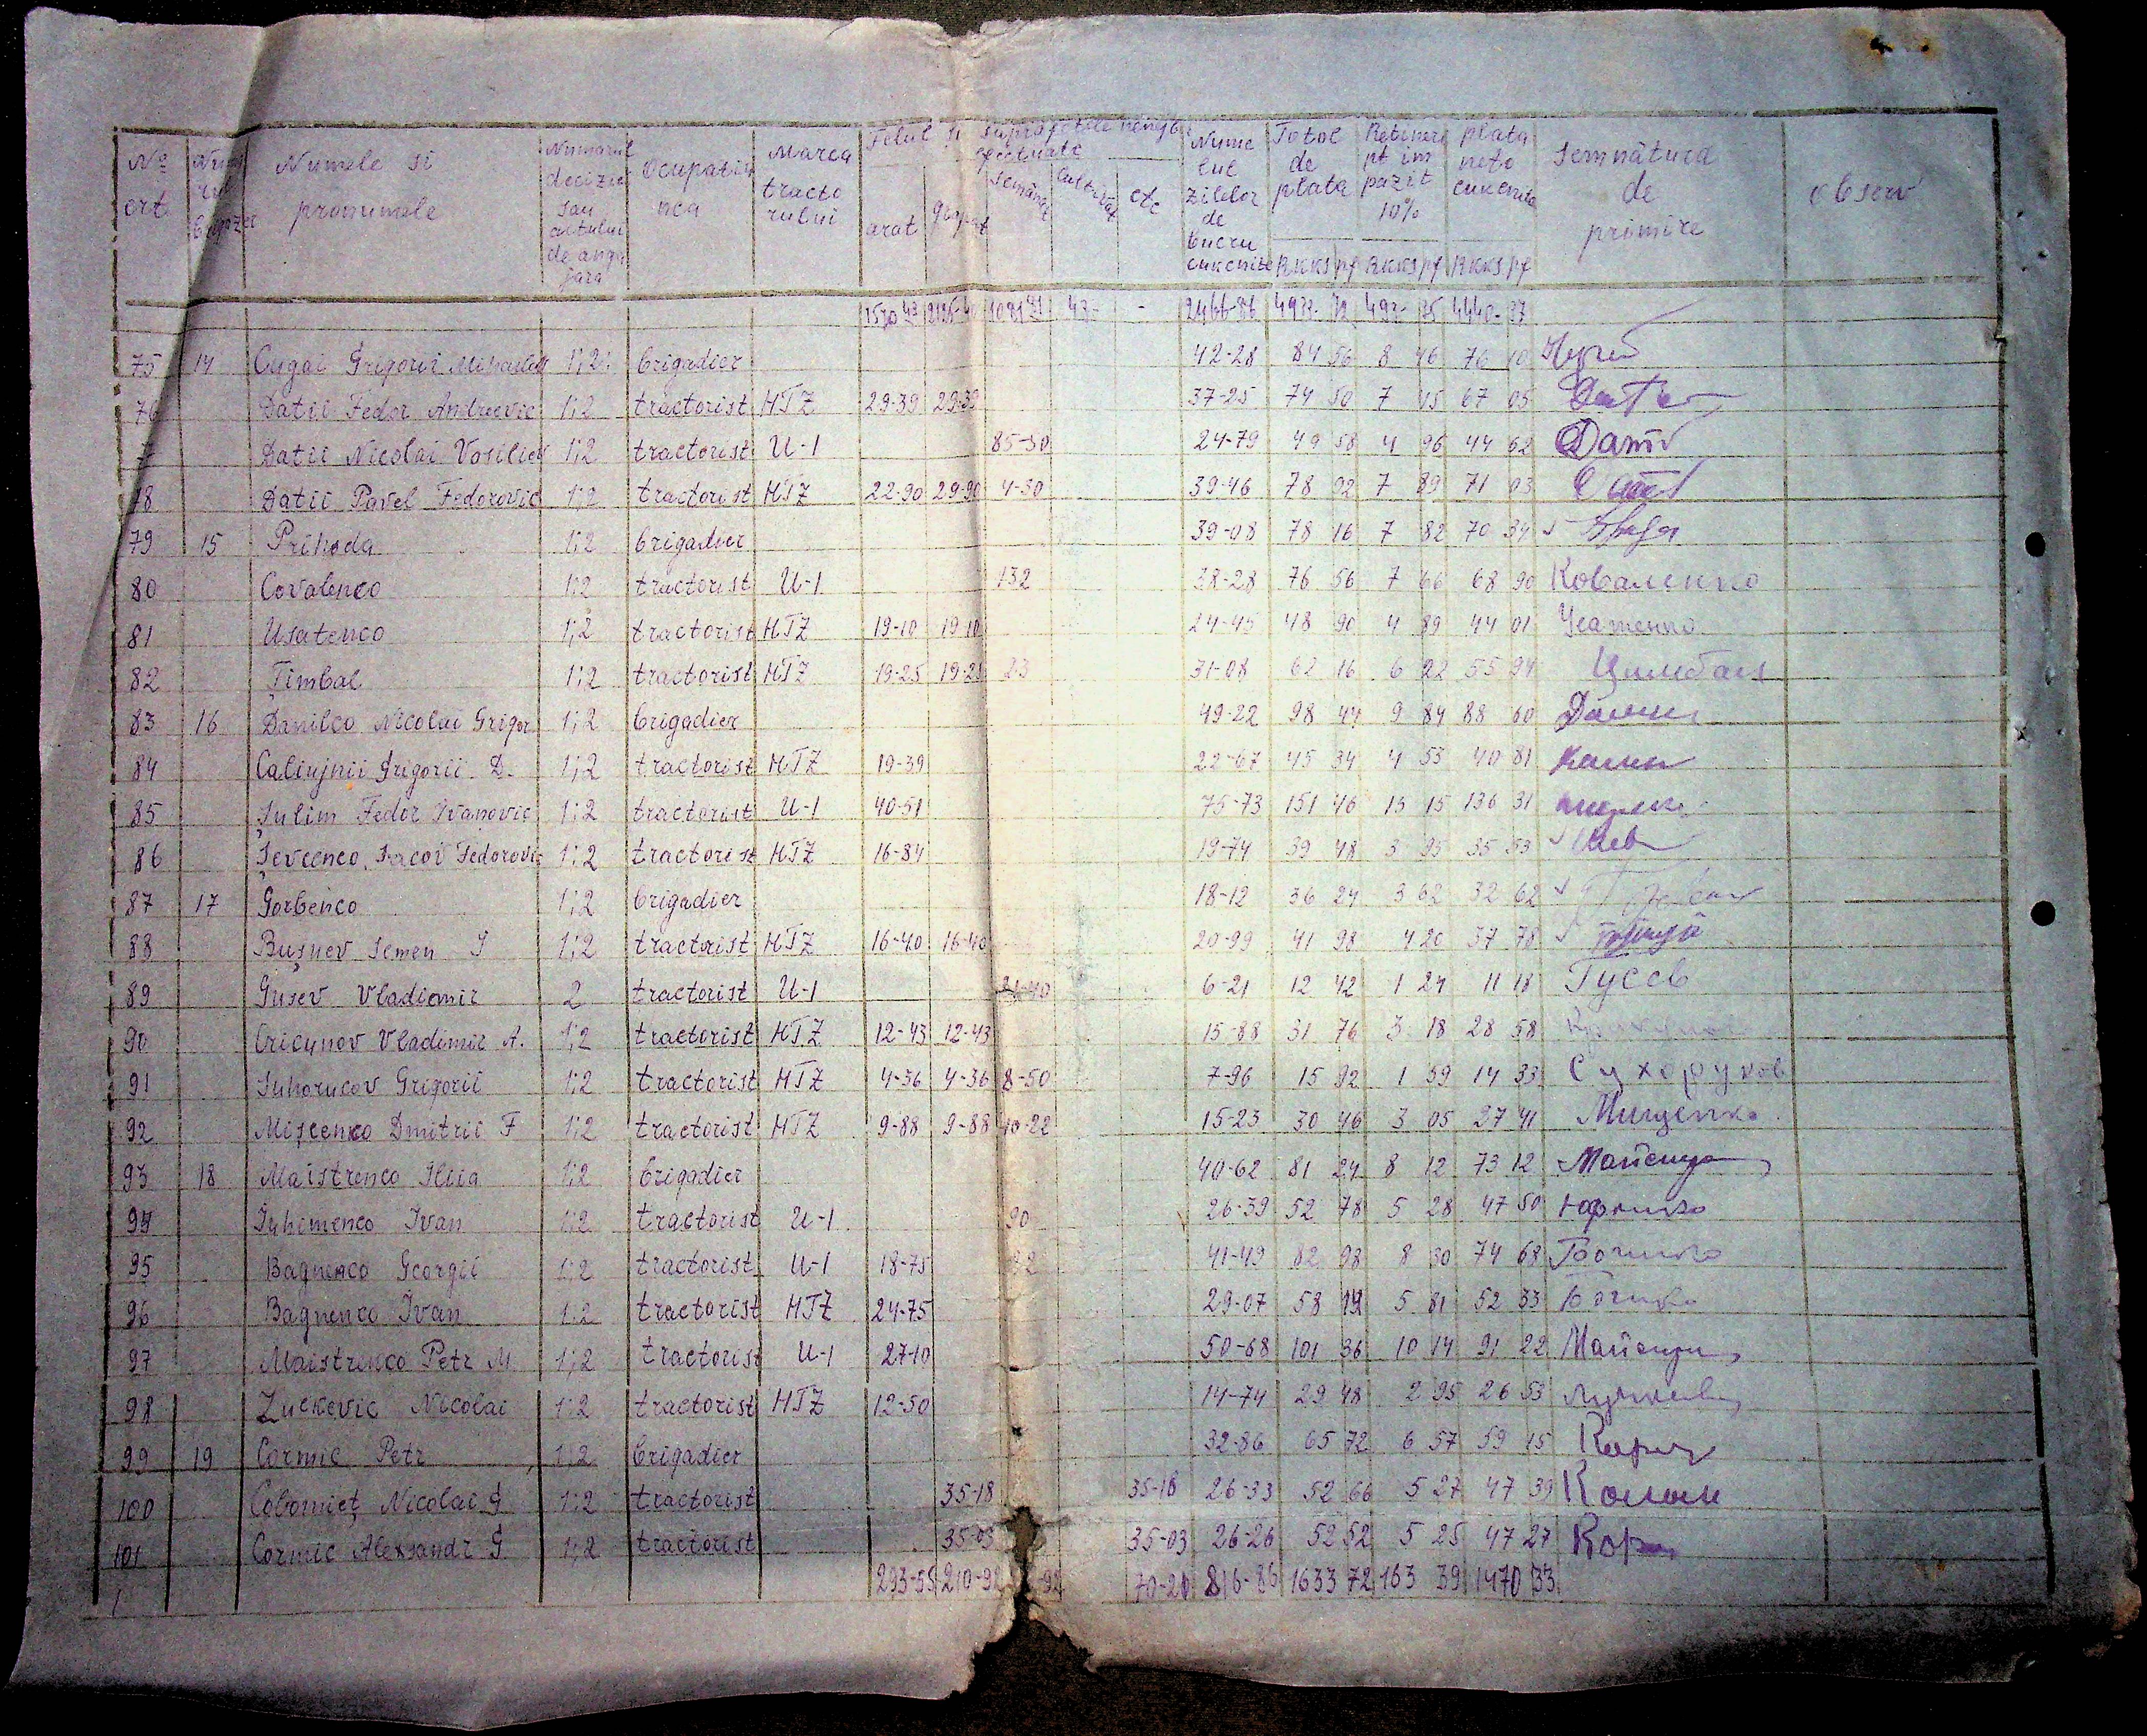 Nº crt. Numele si pronumele Numarul deciziei sau actului de anga jara Ocupatiu nea Marca tracto rului Felul și suprafețele arat etc Nume rul zilelor de lucru Totol de plata RKKS pf Rețineri pt im pozit 10% RKKS pf plata neto RKKS pf Semnătura de primire observ
43- - 2466-86
75 14 Grigorii 1;2 brigadier 42-28 84 56 8 46 76 10
76 Datii Fedor Andreevic 1;2 tractorist HTZ 29-39 29-39 37-25 74 50 7 45 67 05
Datii Nicolai Vasilievic 1;2 tractorist U-1 85-30 24-79 49 58 4 96 44 62
78 Datii Pavel Fedorovic 1;2 tractorist HTZ 22-90 29-90 4-30 39-46 78 92 7 89 71 03
79 15 Prihoda 1;2 brigadier 39-08 78 16 7 82 70 34
80 Covalenco 1;2 tractorist U-1 132 38-28 76 56 7 66 68 90 Коваленко
81 Usatenco 1;2 tractorist HTZ 19-10 19-10 24-45 48 90 4 89 44 01 Усатенко
82 Țimbal 1;2 tractorist HTZ 19-25 19-25 23 31-08 62 16 6 22 55 94 Цимбал
83 16 Danilco Nicolai Grigor 1;2 brigadier 49-22 98 44 9 84 88 60
84 Caliujnii Grigorii D. 1;2 tractorist HTZ 19-39 22-67 45 34 4 53 40 81
85 Șulim Fedor Ivanovic 1;2 tractorist U-1 40-51 75-73 151 46 15 15 136 31
86 Șevcenco Iacov Fedorovic 1;2 tractorist HTZ 16-84 19-74 39 48 3 95 35 53
87 17 Gorbenco 1;2 brigadier 18-12 36 24 3 62 32 62
88 Bușuev Semen I 1;2 tractorist HTZ 16-40 16-40 20-99 41 98 4 20 37 78
89 Gusev Vladiomir 2 tractorist U-1 21-40 6-21 12 42 1 24 11 18 Гусев
90 Cricunov Vladimir A. 1;2 tractorist HTZ 12-43 12-43 15-88 31 76 3 18 28 58
91 Suhorucov Grigorii 1;2 tractorist HTZ 4-36 4-36 8-50 7-96 15 92 1 59 14 33 Сухоруков
92 Mișcenco Dmitrii F 1;2 tractorist HTZ 9-88 9-88 10-22 15-23 30 46 3 05 27 41 Мищенко
93 18 Maistrenco Iliia 1;2 brigadier 40-62 81 24 8 12 73 12
94 Iuhimenco Ivan 1;2 tractorist U-1 90 26-39 52 78 5 28 47 50
95 Bagnenco Georgii 1;2 tractorist U-1 18-75 32 41-49 82 98 8 30 74 68
96 Bagnenco Ivan 1;2 tractorist HTZ 24-75 29-07 58 14 5 81 52 33
97 Maistrenco Petr M 1;2 tractorist U-1 27-10 50-68 101 36 10 14 91 22
98 Nicolai 1;2 tractorist HTZ 12-50 14-74 29 48 2 95 26 53
99 19 Cormic Petr 1;2 brigadier 32-86 65 72 6 57 59 15
100 Colomieț Nicolai G 1;2 tractorist 35-18 35-18 26-33 52 66 5 27 47 39
101 Cormic Alexsandr G 1;2 tractorist 35-03 35-03 26-26 52 52 5 25 47 27
293-55 210-92 70-20 816-86 1633 72 163 39 1470 33